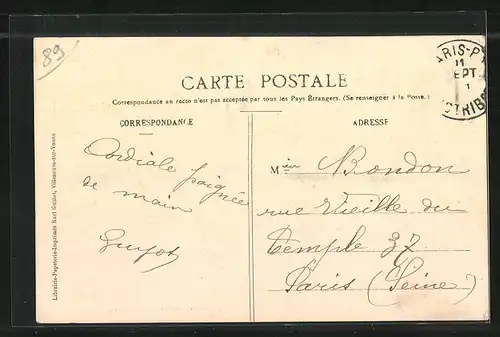 89
CARTE POSTALE
Correspondance au recto n'est pas acceptée par tous les Pays Étrangers. (Se renseigner à la Poste.)
CORRESPONDANCE
Cordiale poignée
de main
Guyot
ADRESSE
Mieur Bondon
rue Vieille du
Temple 37
Paris (Seine)
PARIS-P
11
SEPT
1
DISTRIB
Librairie-Papeterie-Imprimée Karl Guillot, Villeneuve-sur-Yonne